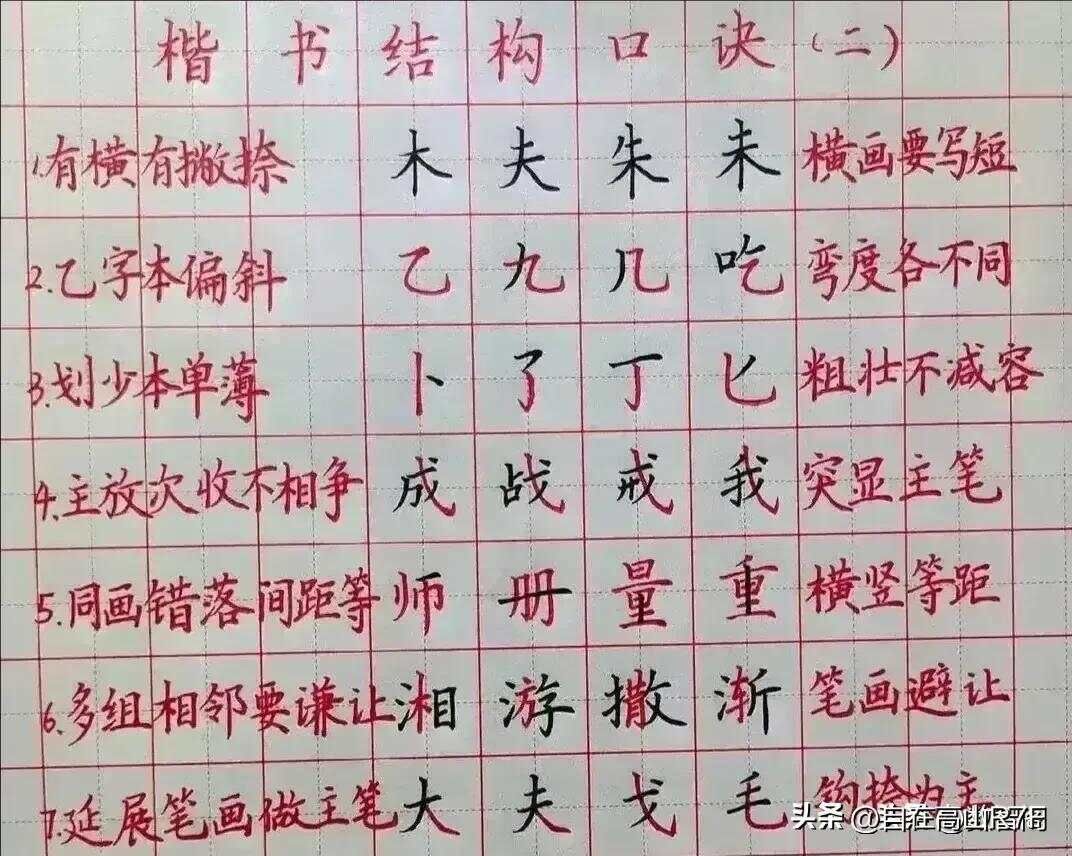 楷书结构口诀(二)
1.有横有撇捺 木 夫 朱 未 横画要写短
2.乙字本偏斜 乙 九 几 吃 弯度各不同
3.划少本单薄 卜 了 丁 匕 粗壮不减容
4.主放次收不相争 成 战 戒 我 突显主笔
5.同画错落间距等 师 册 量 重 横竖等距
6.多组相邻要谦让 湘 游 撒 渐 笔画避让
7.延展笔画做主笔 大 夫 戈 毛 钩捺为主
头条